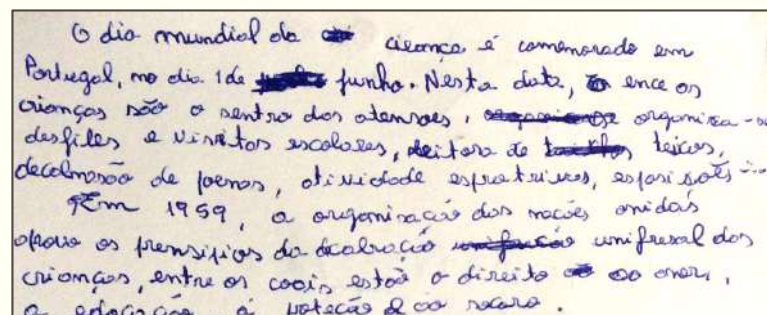 O dia mundial da ciança é comemorado em
Portugal, no dia 1 de junho. Nesta data, ence os
crianças são o sentro das atensoes, organisa-se
desfiles e visitas escolares, leitora de teicos,
decalmasão de poemas, atividade, esporisões
Em 1959, a organisação das nações onidas
aprova os prensipios da dcalração unifresal dos
crianças, entre os coais estão o direito ao amor,
a edocação, á poteção e ao socoro.